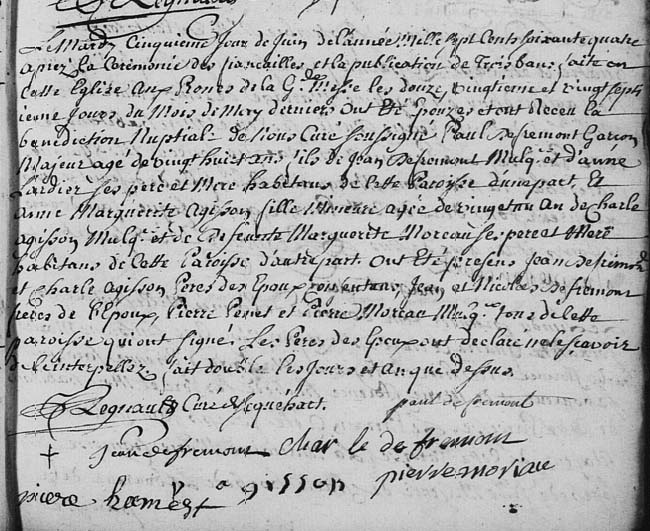 Le Mardy Cinquieme Jour de Juin de l'année Mille sept Cents soixante quatre
apres La Ceremonie des fiancailles et la publication de trois bans faite en
cette Eglise aux Prones de la G.de Messe les douze, vingtieme et vingt sept
ieme Jours du Mois de May derniers ont Eté Epouzés et ont Receu la
benediction Nuptiale de nous Curé soussigné, Paul Defremont Garcon
Majeur agé de vingt huit ans fils de Jean Defremont Mulq.r et d'anne
Lardier ses pere et Mere habitans de cette Paroisse d'une part, Et
anne Marguerite agisson fille Mineure agée de vingt un an de Charle
agisson Mulq.r et de Defeunte Marguerite Moreau ses pere et Mere
habitans de cette Paroisse d'autre part. ont Eté presens Jean Defremont
et Charle agisson Peres des Epoux, Jean et Nicolas Defremont
freres de l'Epoux, Pierre Penet et Pierre Moreau Mulq.rs tous de cette
Paroisse qui ont signé. Les Peres des Epoux ont declaré ne le sçavoir
de ce interpellez, fait double les Jours et an que dessus.
Regnault Curé de sequehart. paul de fremont
Jean defremont char le de fremont
pierre moriau
agisson